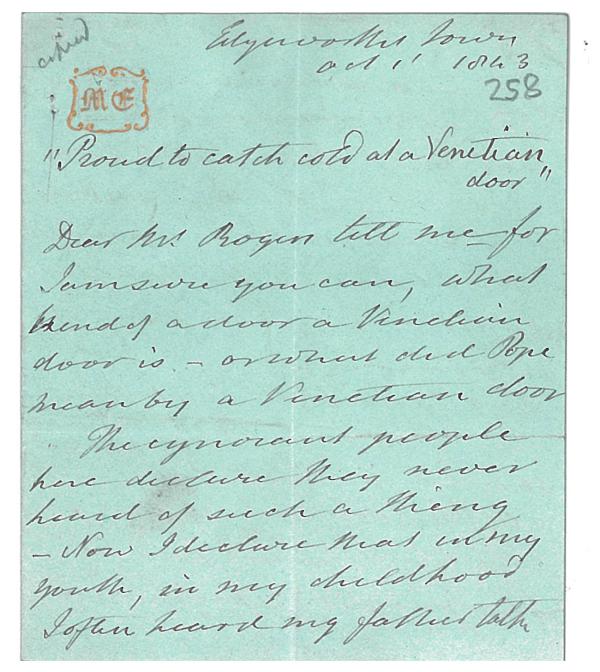 copied
Edgeworths Town
Oct 1' 1843
258
ME
"Proud to catch cold at a Venetian
door"
Dear Mr Rogers tell me for
I am sure you can, what
kind of a door a Venetian
door is – or what did Pope
mean by a Venetian door
The ignorant people
here declare they never
heard of such a thing
– Now I declare that in my
youth, in my childhood
I often heard my father talk